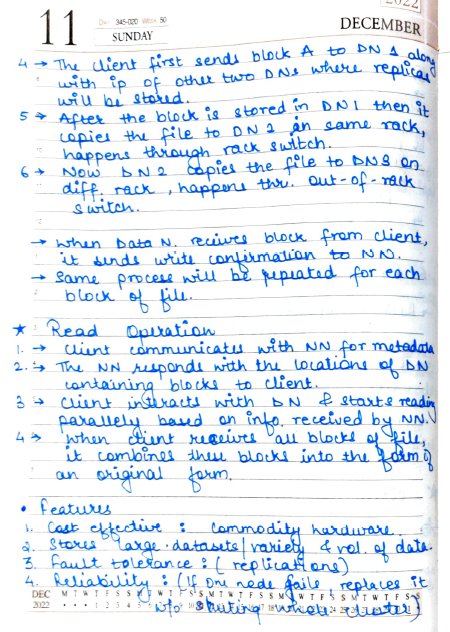 2022
11
Day 345-020 Week 50
SUNDAY
DECEMBER
4 → The client first sends block A to DN 1 along
with ip of other two DNs where replicas
will be stored.
5 → After the block is stored in DN1 then it
copies the file to DN 2 in same rack,
happens through rack switch.
6 → Now DN2 copies the file to DN3 on
diff. rack, happens thr. out-of-rack
switch.
→ When Data N. recives block from client,
it sends write confirmation to NN.
→ Same process will be repeated for each
block of file.
★ Read Operation
1. → Client communicates with NN for metadata
2. → The NN responds with the locations of DN
containing blocks to client.
3 → Client interacts with DN & starts reading
parallely based on info. received by NN.
4 → When client receives all blocks of file,
it combines these blocks into the form of
an original form.
• Features
1. Cost effective : commodity hardware
2. Stores large datasets/variety & vol. of data.
3. Fault tolerance : (replications)
4. Reliability : (If one node fails, replaces it
w/o shutting whole cluster)
DEC M T W T F S S M T W T F S S M T W T F S S M T W T F S S M T W T F S
2022 • • • 1 2 3 4 5 6 7 8 9 10 11